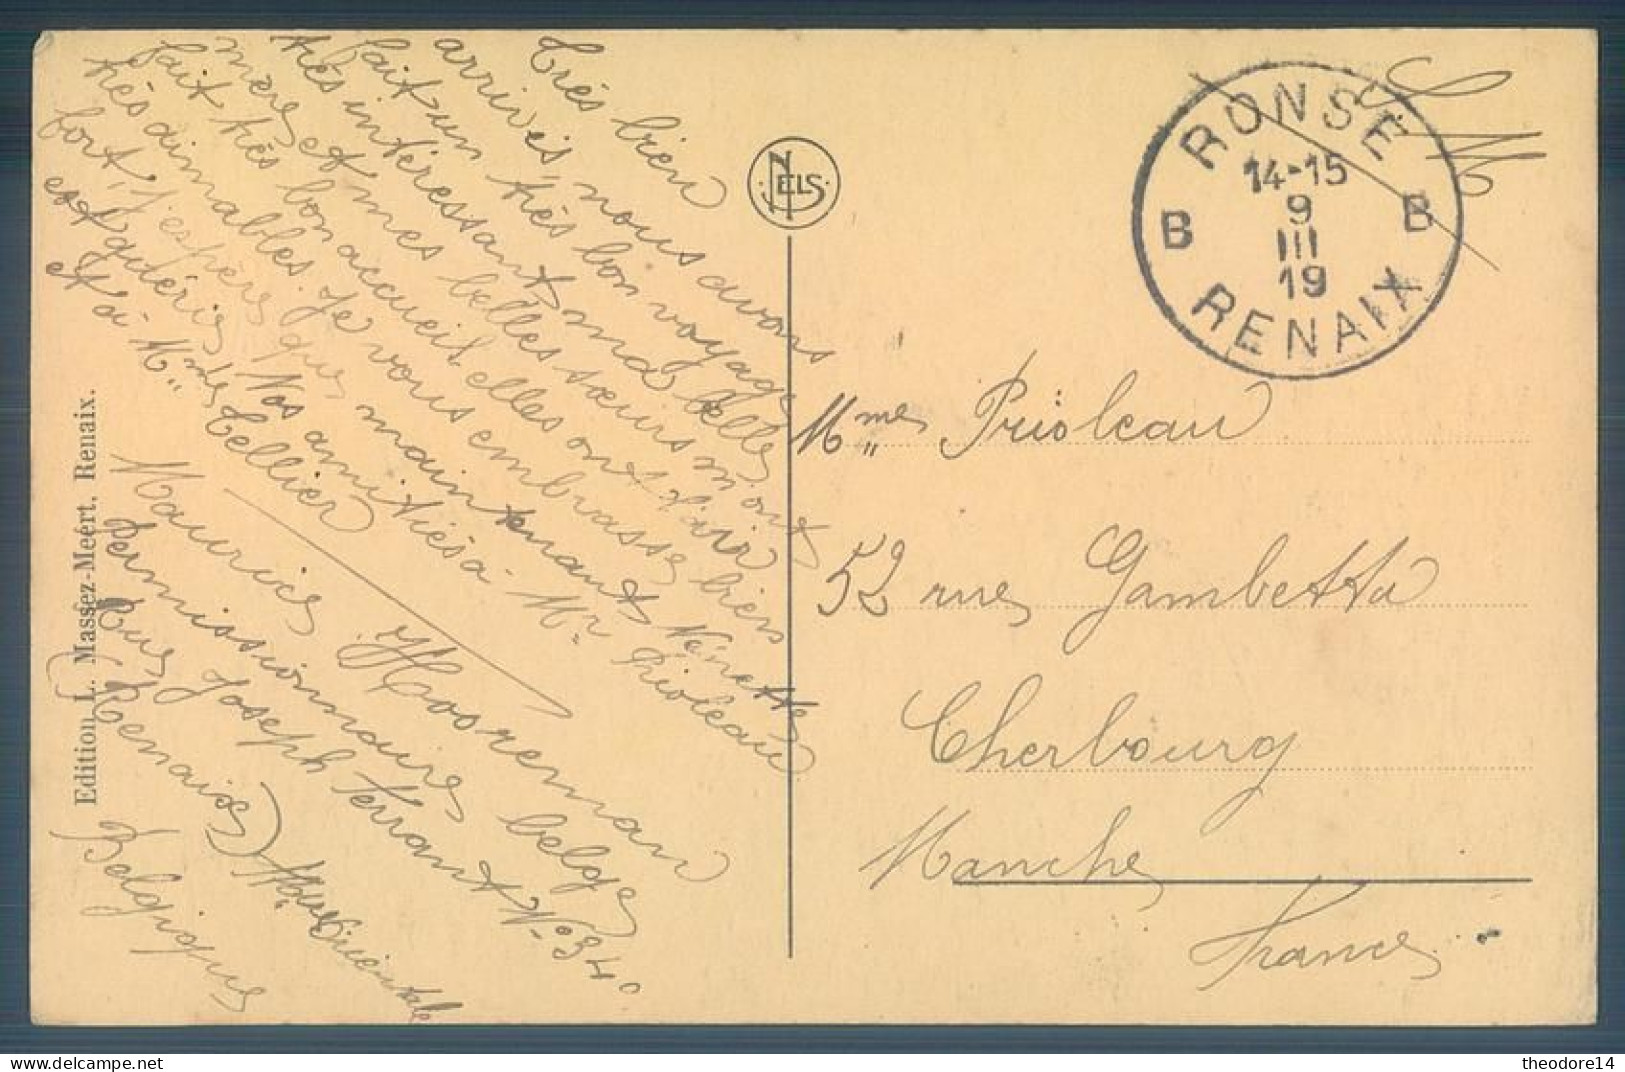 Très bien
arrivés, nous avons
fait un très bon voyage
très intéressant, ma belle
mère et mes belles sœurs m'ont
fait très bon accueil, elles ont l'air
très aimables. Je vous embrasse bien
fort, j'espère que maintenant Nénette
est guérie, Nos amitiés à Mr Prioleau
et à Mme Tellier
Maurice Hooreman
Permissionnaire belge
Rue Joseph Ferrant No 34
(Renaix) Flandre Orientale
Belgique
Edition L. Massez-Meért, Renaix.
NELS
S. M.
RONSE
14-15
9
III
19
B B
RENAIX
Mme Prioleau
52 rue Gambetta
Cherbourg
Manche
France
theodore14